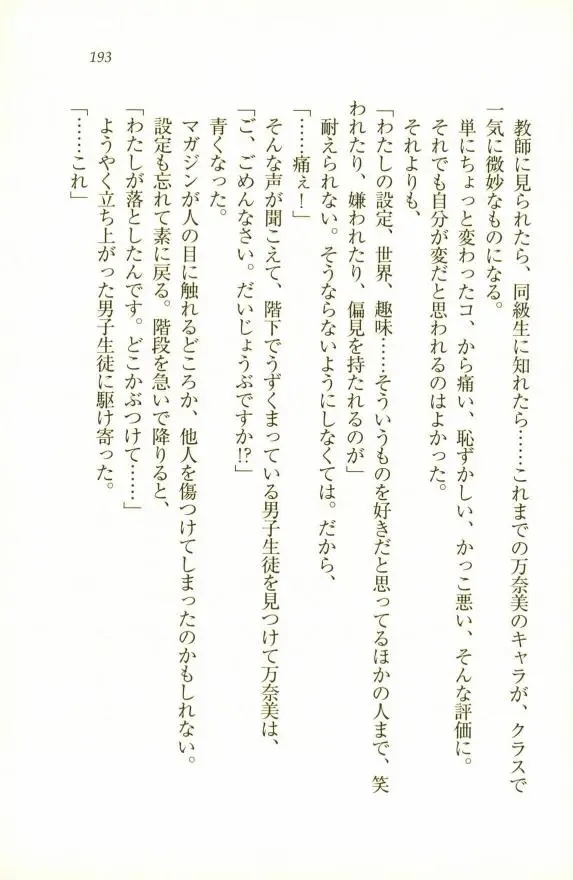 193
教師に見られたら、同級生に知れたら……これまでの万奈美のキャラが、クラスで
一気に微妙なものになる。
単にちょっと変わったコ、から痛い、恥ずかしい、かっこ悪い、そんな評価に。
それでも自分が変だと思われるのはよかった。
それよりも、
「わたしの設定、世界、趣味……そういうものを好きだと思ってるほかの人まで、笑
われたり、嫌われたり、偏見を持たれるのが」
耐えられない。そうならないようにしなくては。だから、
「……痛ぇ！」
そんな声が聞こえて、階下でうずくまっている男子生徒を見つけて万奈美は、
「ご、ごめんなさい。だいじょうぶですか!?」
青くなった。
マガジンが人の目に触れるどころか、他人を傷つけてしまったのかもしれない。
設定も忘れて素に戻る。階段を急いで降りると、
「わたしが落としたんです。どこかぶつけて……」
ようやく立ち上がった男子生徒に駆け寄った。
「……これ」